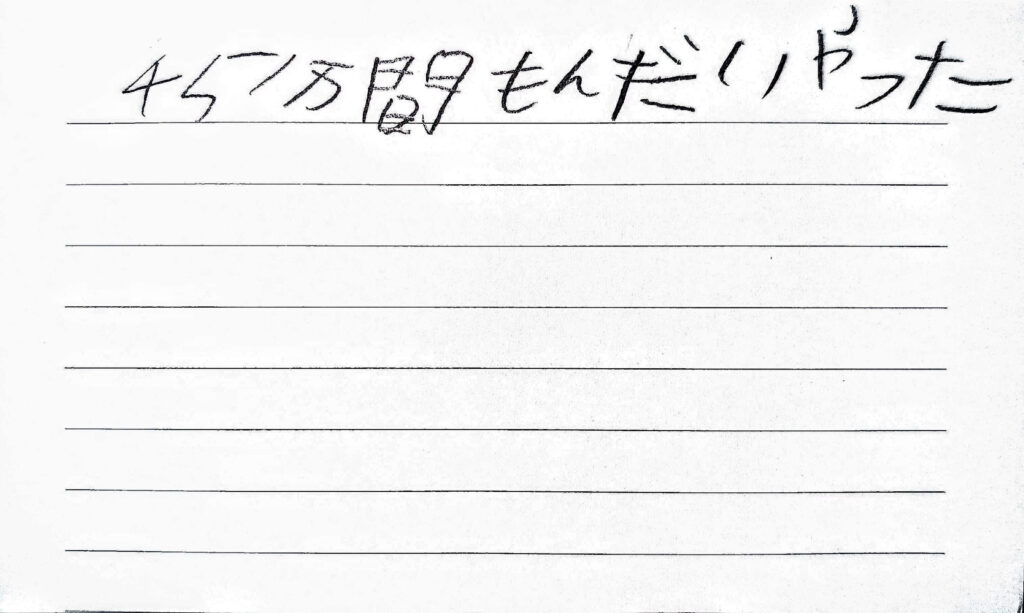 451万間もんだいやった